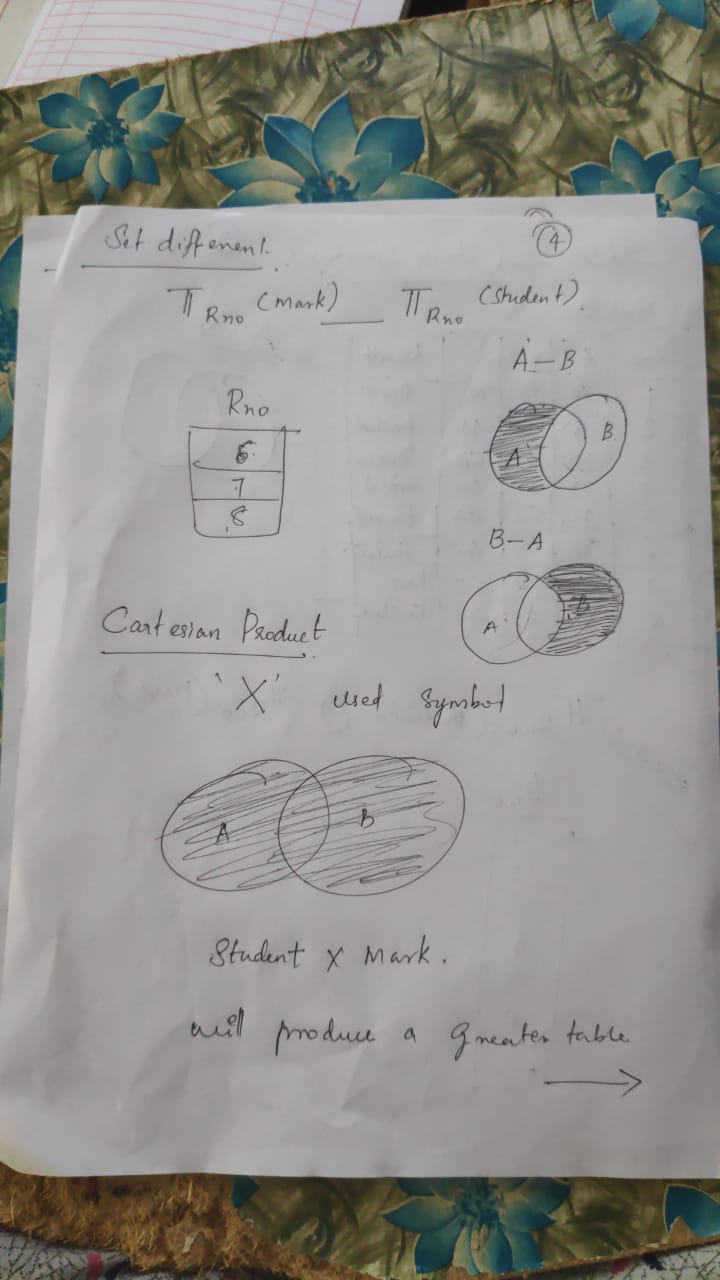 Set different.
4
π Rno (mark) — π Rno (student).
A – B
Rno
6
7
8
A B
B – A
A B
Cartesian Product
'X' used symbol
A B
Student X Mark.
will produce a greater table
→